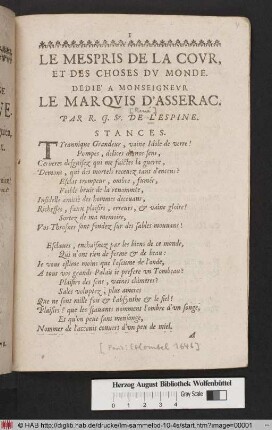 1
LE MESPRIS DE LA COVR,
ET DES CHOSES DV MONDE.
DEDIE' A MONSEIGNEVR
LE MARQVIS D'ASSERAC.
PAR R. G. Sr. DE LESPINE.
STANCES.
Tyrannique Grandeur, vaine Idole de verre!
Pompes, delices de nos sens,
Cerveres desguisez qui me faictes la guerre,
Demons, qui des mortels recevez tant d'encens!
Esclat trompeur, ombre, fumée,
Foible bruit de la renommée,
Infidelle amitié des hommes decevans,
Richesses, faux plaisirs, erreurs, & vaine gloire!
Sortez de ma memoire,
Vos Throsnes sont fondez sur des sables mouvans!
Esclaves, enchaisnez par les biens de ce monde,
Qui n'ont rien de ferme & de beau:
Je vous estime moins que l'escume de l'onde,
A tous vos grands Palais je prefere un Tombeau!
Plaisirs des sens, vaines chimeres!
Sales voluptez, plus ameres
Que ne sont mille fois & l'absynthe & le fiel!
Plaisirs! que les sçavants nomment l'ombre d'un songe,
Et qu'on peut sans mensonge,
Nommer de l'aconit couvert d'un peu de miel.
A
[Paris: Colombel 1646]
Herzog August Bibliothek Wolfenbüttel
Gray Scale
© HAB http://diglib.hab.de/drucke/lm-sammelbd-10-4s/start.htm?image=00001